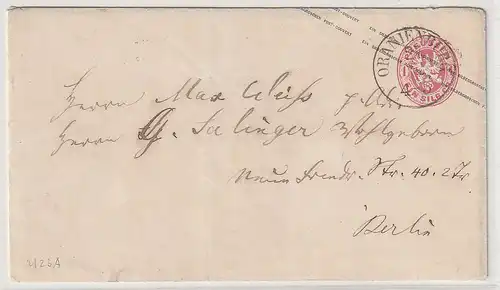 ORANIENBURG
1 SILB. GR.
Herrn Max Weiß p. Adr.
Herrn G. Salinger Wohlgeborn
Neue Friedr. Str. 40. 2 Tr.
Berlin
U26A